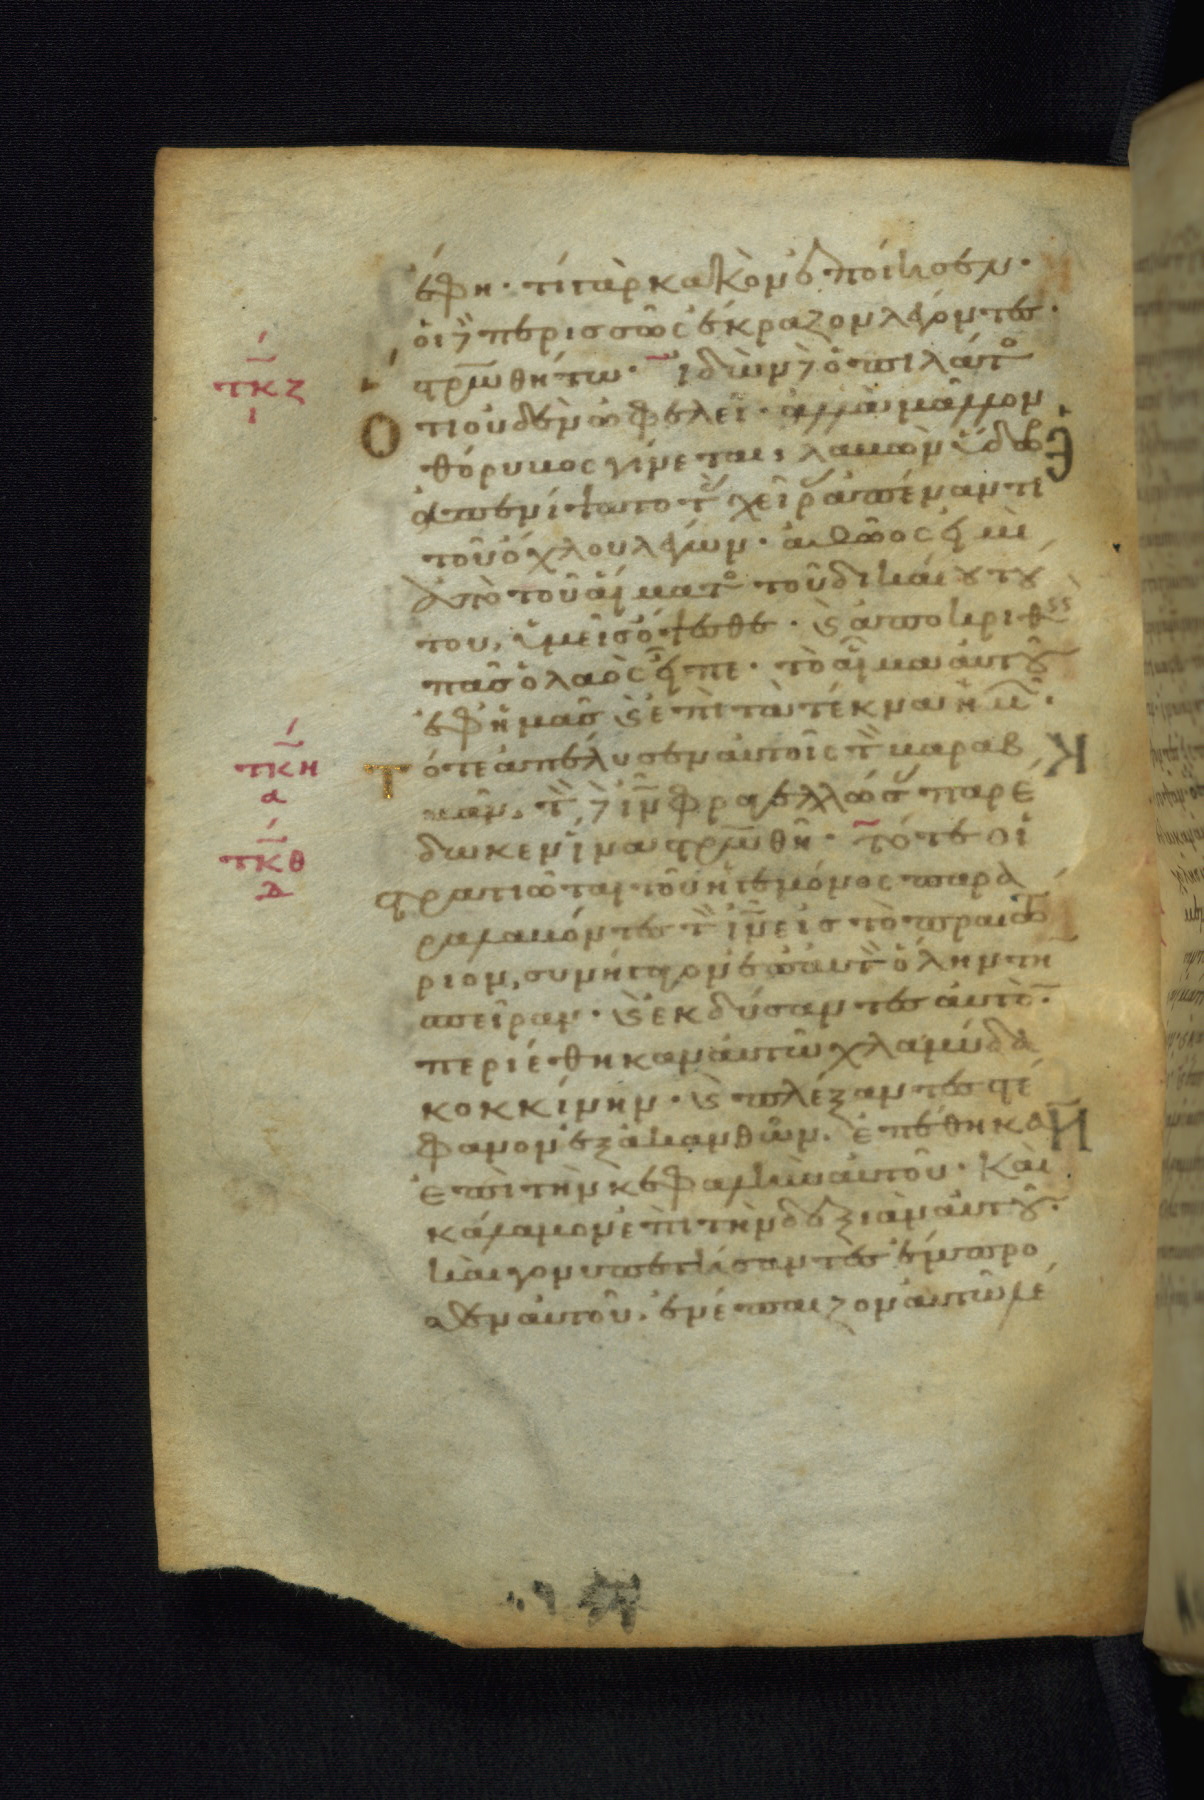 έφη· τί γὰρ κακὸν ἐποίησεν·
οἱ δὲ περισσῶς ἔκραζον λέγοντες·
τκζ
ι
στρωθήτω· ἰδὼν δὲ ὁ πιλάτος
Ο τι οὐδὲν ὠφελεῖ· ἀλλὰ μᾶλλον
θόρυβος γίνεται, λαβὼν ὕδωρ
ἀπενίψατο τὰς χεῖρας ἀπέναντι
τοῦ ὄχλου λέγων· ἀθῶος εἰμὶ
ἀπὸ τοῦ αἵματος τοῦ δικαίου τού
του, ὑμεῖς ὄψεσθε· ϗ ἀποκριθεὶς
πᾶς ὁ λαὸς εἶπε· τὸ αἷμα αὐτοῦ
ἐφ ἡμᾶς ϗ ἐπὶ τὰ τέκνα ἡμῶν·
τκη
α
Τ ότε ἀπέλυσεν αὐτοῖς τὸν βαραβ
βᾶν, τὸν δὲ ἰν φραγελλώσας παρέ
τκθ
δ
δωκεν ἵνα στρωθῆ· τότε οἱ
στρατιῶται τοῦ ἡγεμόνος παρα
λαβόντες τὸν ἰν εἰς τὸ πραιτώ
ριον, συνήγαγον ἐπ αὐτὸν ὅλην τὴν
σπεῖραν· ϗ ἐκδύσαντες αὐτὸν·
περιέθηκαν αὐτῶ χλαμύδα
κοκκίνην· ϗ πλέξαντες στέ
φανον ἐξ ἀκανθῶν, ἐπέθηκαν
ἐπὶ τὴν κεφαλὴν αὐτοῦ· καὶ
κάλαμον ἐπὶ τὴν δεξιὰν αὐτοῦ·
καὶ γονυπετήσαντες ἔμπρο
σθεν αὐτοῦ, ἐνέπαιζον αὐτῶ λέ